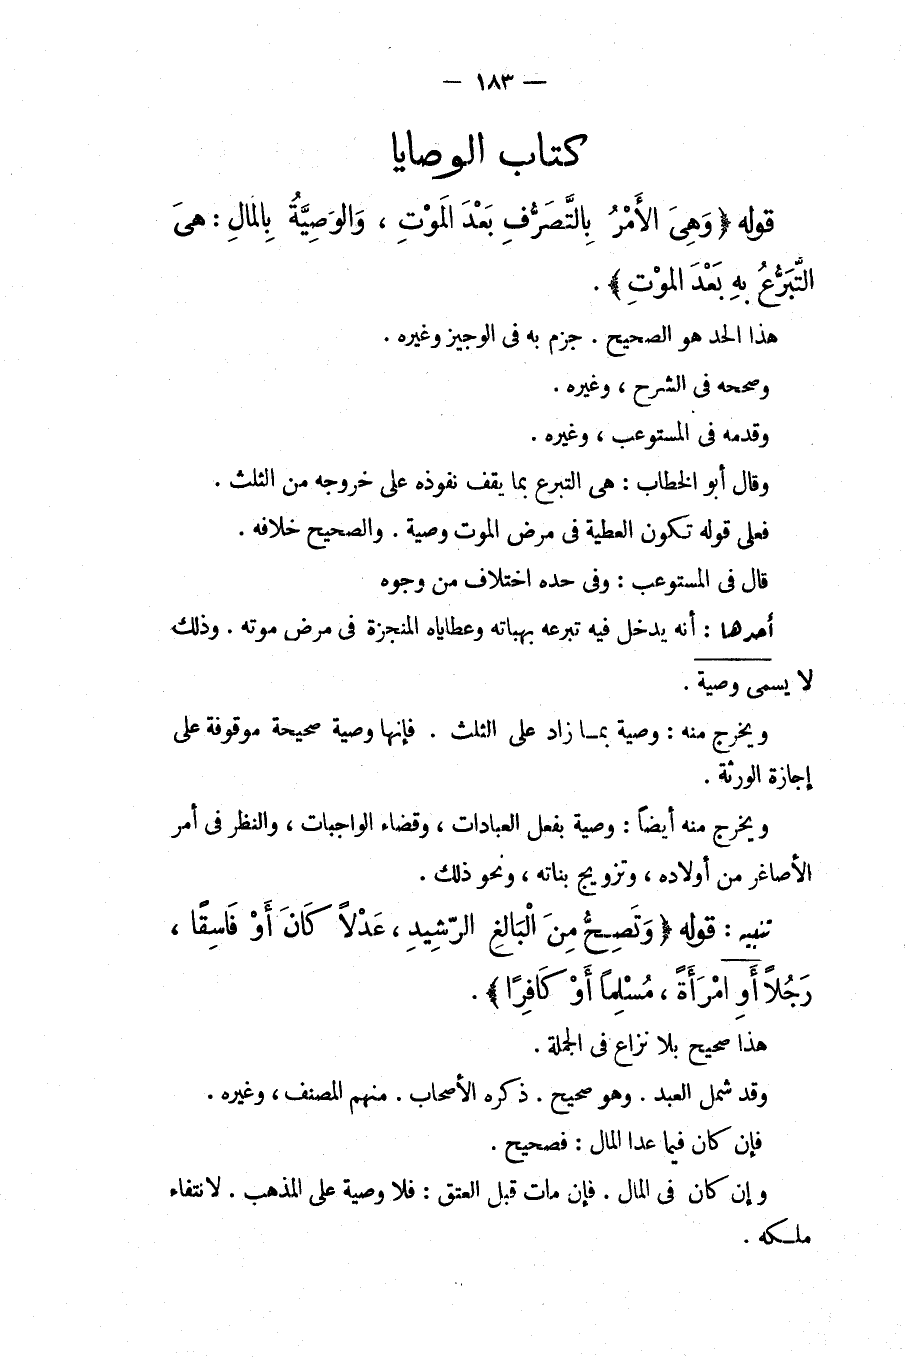 — ١٨٣ —
كتاب الوصايا
قوله ﴿ وَهِىَ الأَمْرُ بِالتَّصَرُّفِ بَعْدَ المَوْتِ ، وَالوَصِيَّةُ بِالمَالِ : هىَ
التَّبَرُّعُ بِهِ بَعْدَ الموْتِ ﴾ .
هذا الحد هو الصحيح . جزم به فى الوجيز وغيره .
وصححه فى الشرح ، وغيره .
وقدمه فى المستوعب ، وغيره .
وقال أبو الخطاب : هى التبرع بما يقف نفوذه على خروجه من الثلث .
فعلى قوله تكون العطية فى مرض الموت وصية . والصحيح خلافه .
قال فى المستوعب : وفى حده اختلاف من وجوه
أحدها : أنه يدخل فيه تبرعه بهباته وعطاياه المنجزة فى مرض موته . وذلك
لا يسمى وصية .
ويخرج منه : وصية بمـا زاد على الثلث . فإنها وصية صحيحة موقوفة على
إجازة الورثة .
ويخرج منه أيضاً : وصية بفعل العبادات ، وقضاء الواجبات ، والنظر فى أمر
الأصاغر من أولاده ، وتزويج بناته ، ونحو ذلك .
تنبيه : قوله ﴿ وَتَصِـحُّ مِنَ الْبَالغِ الرّشِيدِ ، عَدْلاً كَانَ أَوْ فَاسِقًا ،
رَجُلاً أَوِ امْرَأَةً ، مُسْلِماً أَوْ كَافِرًا ﴾ .
هذا صحيح بلا نزاع فى الجملة .
وقد شمل العبد . وهو صحيح . ذكره الأصحاب . منهم المصنف ، وغيره .
فإن كان فيما عدا المال : فصحيح .
وإن كان فى المال . فإن مات قبل العتق : فلا وصية على المذهب . لانتفاء
ملـكه .